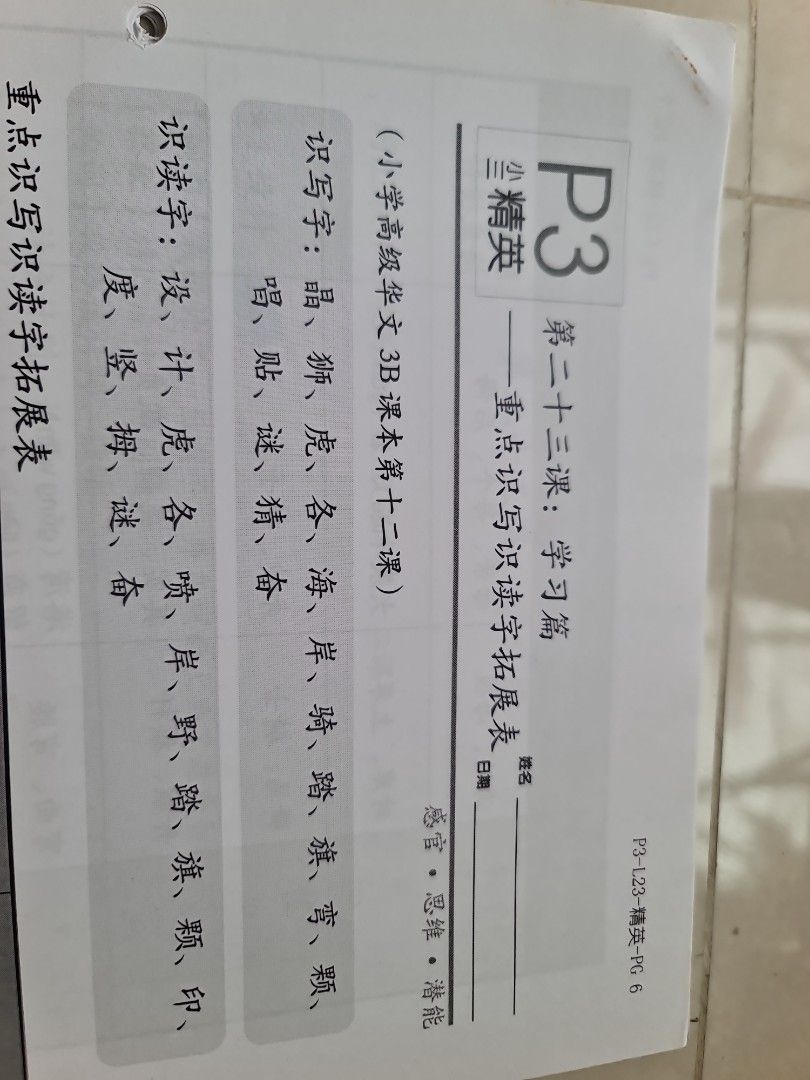 P3-L23-精英-PG 6
P3
小三 精英
第二十三课：学习篇
——重点识写识读字拓展表
姓名
日期
感官·思维·潜能
（小学高级华文 3B 课本第十二课）
识写字：晶、狮、虎、各、海、岸、骑、踏、旗、弯、颗、
唱、贴、谜、猜、奋
识读字：设、计、虎、各、喷、岸、野、踏、旗、颗、印、
度、竖、拇、谜、奋
重点识写识读字拓展表